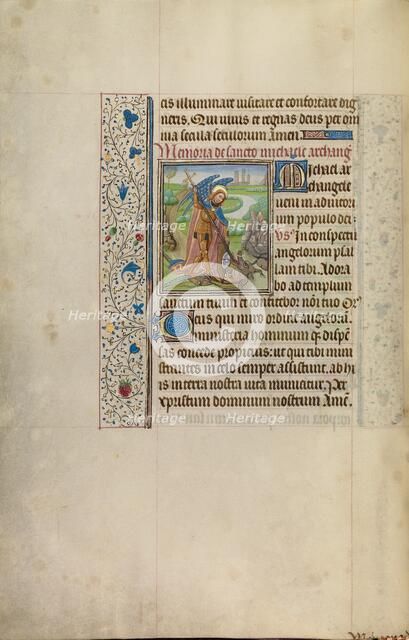 cis illuminare visitare et confortare dig
neris. Qui vivis et regnas deus per om
nia secula seculorum Amen
Memoria de sancto michaele archang
Michael ar
changele
veni in adiutori
um populo dei.
Vs In conspectu
angelorum psal
lam tibi. Adora
bo ad templum
sanctum tuum et confitebor noi tuo Or
Deus qui miro ordine angelorum
ministeria hominum q3 dispen
sas concede propicius: ut qui tibi mini
strantes in celo semper assistunt. ab his
in terra nostra vita muniatur. Per
xpristum dominum nostrum Amen.
Heritage Images